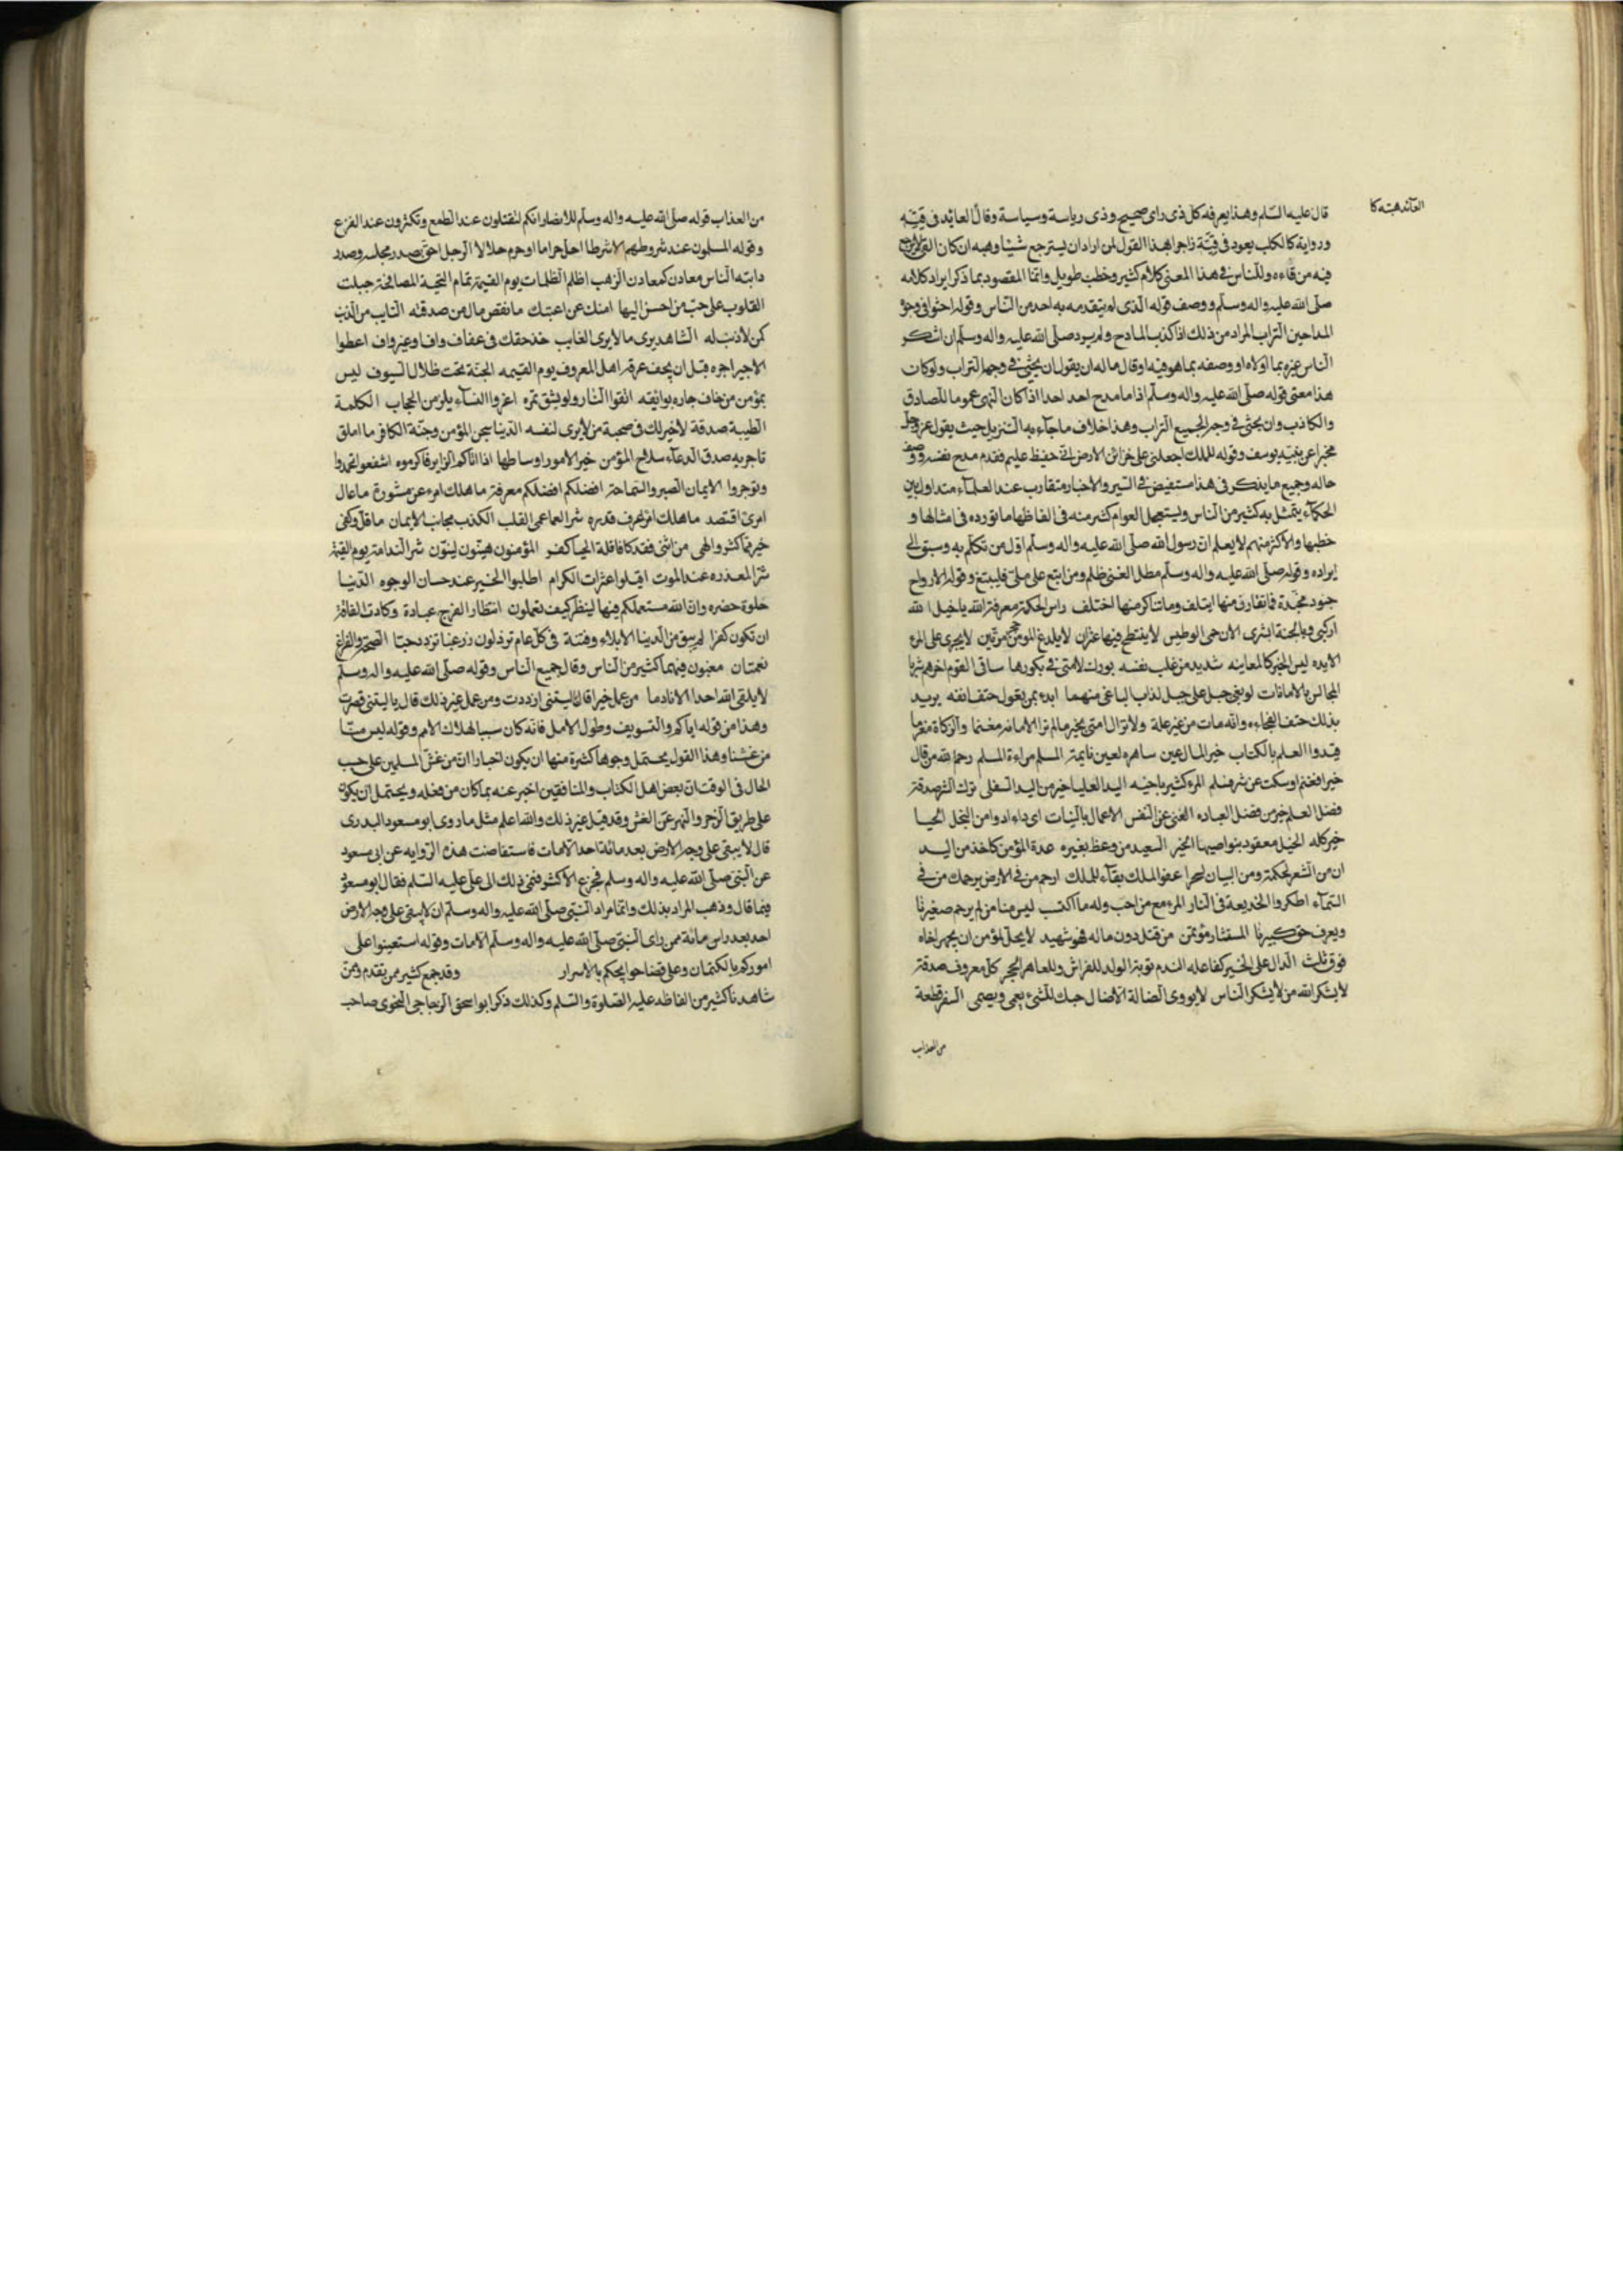 العائد هبته كا
قال عليه السلم وهذا يعرفه كل ذى راى صحيح وذى رياسة وسياسة وقال العائد فى قيئه
ورواية كالكلب يعود فى قيئه زاجرا بهذا القول لمن اراد ان يسترجع شيئا وهبه ان كان القى
فيه من قاءه وللناس فى هذا المعنى كلام كثير وخطب طويل وانما المقصود بما ذكر ايراد كلامه
صلى الله عليه واله وسلم ووصف قوله الذى لم يتقدمه به احد من الناس وقوله احثوا فى وجوه
المداحين التراب المراد من ذلك اذا كذب المادح ولم يرد صلى الله عليه واله وسلم ان شكر
الناس غيره بما اولاه او وصفه بما هو فيه او قال ماله ان يقول ان يحثى فى وجهه التراب ولو كان
هذا معنى قوله صلى الله عليه واله وسلم اذا ما مدح احد احدا اذا كان النهى عموما للصادق
والكاذب وان يحثى فى وجه الجميع التراب وهذا خلاف ما جاء به التنزيل حيث يقول عز وجل
مخبرا عن نبيه يوسف وقوله للملك اجعلنى على خزائن الارض انى حفيظ عليم فقدم مدح نفسه ووصف
حاله وجميع ما يذكر فى هذا مستفيض فى السير والاخبار متقارب عند العلماء متداول بين
الحكماء يتمثل به كثير من الناس ويستعمل العوام كثير منه فى الفاظها ما تورده فى امثالها و
خطبها والاكثر منهم لا يعلم ان رسول الله صلى الله عليه واله وسلم اول من تكلم به وسبق الى
ايراده وقوله صلى الله عليه واله وسلم مطل الغنى ظلم ومن اتبع على ملئ فليتبع وقوله الارواح
جنود مجندة فما تعارف منها ايتلف وما تناكر منها اختلف راس الحكمة معرفة الله يا خيل الله
اركبى وبالجنة ابشرى الان حمى الوطيس لا ينتطح فيها عنزان لا يلدغ المومن من جحر مرتين لا يجنى على المرء
الا يده ليس الخبر كالمعاينه شديد من غلب نفسه بورك لامتى فى بكورها ساقى القوم اخرهم شربا
المجالس بالامانات لو بغى جبل على جبل لذاب الباغى منهما ابدء بمن تعول حتف انفه يريد
بذلك حتف الفجاءه وانه مات من غير علة ولا تزال امتى بخير ما لم تر الامانة مغنما والزكاة مغرما
قيدوا العلم بالكتاب خير المال عين ساهره لعين نايمة المسلم مراءة المسلم رحم الله من قال
خيرا فغنم او سكت عن شر فسلم المرء كثير باخيه اليد العليا خير من اليد السفلى ترك الشر صدقة
فضل العلم خير من فضل العباده الغنى غنى النفس الاعمال بالنيات اى داء ادوا من البخل الحيا
خير كله الخيل معقود بنواصيها الخير السعيد من وعظ بغيره عدة المؤمن كاخذ من اليد
ان من الشعر لحكمة ومن البيان لسحرا عفو الملك بقاء للملك ارحم من فى الارض يرحمك من فى
السماء المكر والخديعة فى النار المرء مع من احب وله ما اكتسب ليس منا من لم يرحم صغيرنا
ويعرف حق كبيرنا المستشار مؤتمن من قتل دون ماله فهو شهيد لا يحل لمؤمن ان يهجر اخاه
فوق ثلث الدال على الخير كفاعله الندم توبة الولد للفراش وللعاهر الحجر كل معروف صدقة
لا يشكر الله من لا يشكر الناس لا يووى الضالة الا ضال حبك للشئ يعمى ويصمى السفر قطعة
من العذاب
من العذاب قوله صلى الله عليه واله وسلم للانصار انكم لتقلون عند الطمع وتكثرون عند الفزع
وقوله المسلمون عند شروطهم الا شرطا احل حراما او حرم حلالا الرجل احق بصدر مجلسه وصدر
دابته الناس معادن كمعادن الذهب اظلم الظلمات يوم القيمة تمام التحية المصافحة جبلت
القلوب على حب من احسن اليها امنك عن اعتبك ما نقص مال من صدقة التايب من الذنب
كمن لا ذنب له الشاهد يرى ما لا يرى الغايب خذ حقك فى عفاف واف او غير واف اعطوا
الاجير اجره قبل ان يجف عرقه اهل المعروف يوم القيمه الجنة تحت ظلال السيوف ليس
بمؤمن من خاف جاره بوائقه اتقوا النار ولو بشق تمره اعزوا النساء يلزمن الحجاب الكلمة
الطيبة صدقة لا خير لك فى صحبة من لا يرى لنفسه الدنيا سجن المؤمن وجنة الكافر ما املق
تاجر به صدق الدعاء سلاح المؤمن خير الامور اوساطها اذا اتاكم الزاير فاكرموه اشفعوا تحمدوا
وتوجروا الايمان الصبر والسماحة افضلكم افضلكم معرفة ما هلك امرء عن مشورة ما عال
امرئ اقتصد ما هلك امرء عرف قدره شر العما عمى القلب الكذب مجانب الايمان ما قل وكفى
خير مما كثر والهى من اثنى فقد كافا قلة الحيا كفر المؤمنون هينون لينون شر الندامة يوم القيمة
شر المعذره عند الموت اقيلوا عثرات الكرام اطلبوا الخير عند حسان الوجوه الدنيا
حلوة خضره وان الله مستعملكم فيها لينظر كيف تعملون انتظار الفرج عبادة وكادت الفاقة
ان تكون كفرا لم يبق من الدنيا الا بلاء وفتنة فى كل عام ترذلون زرغبا تزدد حبا الصحة والفراغ
نعمتان مغبون فيهما كثير من الناس وقال جميع الناس وقوله صلى الله عليه واله وسلم
لا يلقى الله احدا الا نادما من عمل خيرا قال ليتنى ازددت ومن عمل غير ذلك قال يا ليتنى قصرت
وهذا من قوله اياكم والتسويف وطول الامل فانه كان سببا لهلاك الامم وقوله ليس منا
من غشنا وهذا القول يحتمل وجوها كثيرة منها ان يكون اخبارا ان من غش المسلمين على حسب
الحال فى الوقت ان بعض اهل الكتاب والمنافقين اخبر عنه بما كان من فعله ويحتمل ان يكون
على طريق الزجر والنهى عن الغش وقد قيل غير ذلك والله اعلم مثل ما روى ابو مسعود البدرى
قال لا يبقى على وجه الارض بعد مائة احد الا مات فاستفاضت هذه الرواية عن ابى مسعود
عن النبى صلى الله عليه واله وسلم فجزع الاكثر فنمى ذلك الى على عليه السلم فقال ابو مسعود
فيما قال وذهب المراد بذلك وانما مراد النبى صلى الله عليه واله وسلم ان لا يبقى على وجه الارض
احد بعد راس مائة ممن راى النبى صلى الله عليه واله وسلم الا مات وقوله استعينوا على
اموركم بالكتمان وعلى قضا حوايجكم بالاسرار وقد جمع كثير ممن تقدم وممن
شاهدنا كثير من الفاظه عليه الصلوة والسلم وكذلك ذكر ابو اسحق الزجاجى النحوى صاحب